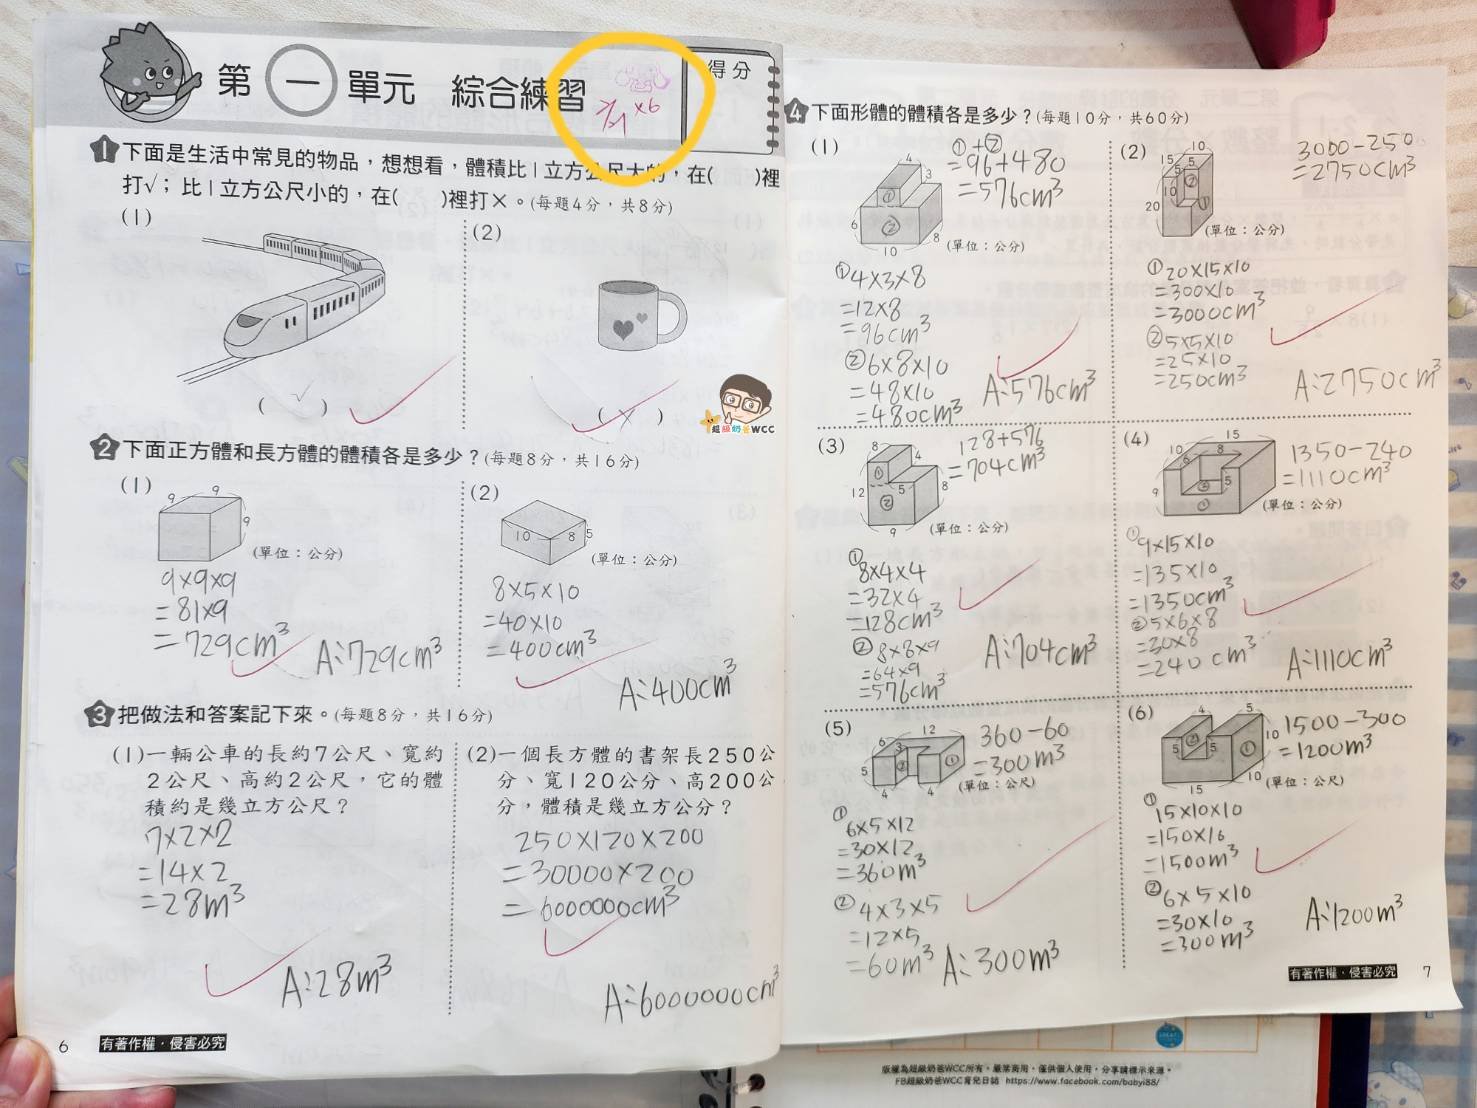 第一單元 綜合練習
得分
7/21 ×6
1 下面是生活中常見的物品，想想看，體積比1立方公尺大的，在( )裡
打√；比1立方公尺小的，在( )裡打×。(每題4分，共8分)
(1)
(2)
( √ )
( × )
超級奶爸WCC
2 下面正方體和長方體的體積各是多少？(每題8分，共16分)
(1)
9
9
9
(單位：公分)
9×9×9
=81×9
=729cm³
A:729cm³
(2)
10 8 5
(單位：公分)
8×5×10
=40×10
=400cm³
A:400cm³
3 把做法和答案記下來。(每題8分，共16分)
(1)一輛公車的長約7公尺、寬約
2公尺、高約2公尺，它的體
積約是幾立方公尺？
7×2×2
=14×2
=28m³
A:28m³
(2)一個長方體的書架長250公
分、寬120公分、高200公
分，體積是幾立方公分？
250×120×200
=30000×200
=6000000cm³
A:6000000cm³
6 有著作權・侵害必究
4 下面形體的體積各是多少？(每題10分，共60分)
(1)
4
3
6
8
10
①
②
(單位：公分)
①+②
=96+480
=576cm³
①4×3×8
=12×8
=96cm³
②6×8×10
=48×10
=480cm³
A:576cm³
(2)
10
15 5
5
10
20
②
①
(單位：公分)
3000-250
=2750cm³
①20×15×10
=300×10
=3000cm³
②5×5×10
=25×10
=250cm³
A:2750cm³
(3)
8
4
12
5
8
9
①
②
(單位：公分)
128+576
=704cm³
①
8×4×4
=32×4
=128cm³
②8×8×9
=64×9
=576cm³
A:704cm³
(4)
15
10
8
6
5
9
②
①
(單位：公分)
1350-240
=1110cm³
①9×15×10
=135×10
=1350cm³
②5×6×8
=30×8
=240cm³
A:1110cm³
(5)
12
6
3
5
4
4
②
①
(單位：公尺)
360-60
=300m³
①
6×5×12
=30×12
=360m³
②4×3×5
=12×5
=60m³
A:300m³
(6)
4
5
5
5
10
10
15
②
①
(單位：公尺)
1500-300
=1200m³
①
15×10×10
=150×10
=1500m³
②6×5×10
=30×10
=300m³
A:1200m³
有著作權・侵害必究 7
版權為超級奶爸WCC所有，嚴禁商用，僅供個人使用，分享請標示來源。
FB超級奶爸WCC育兒日誌 https://www.facebook.com/babyi88/